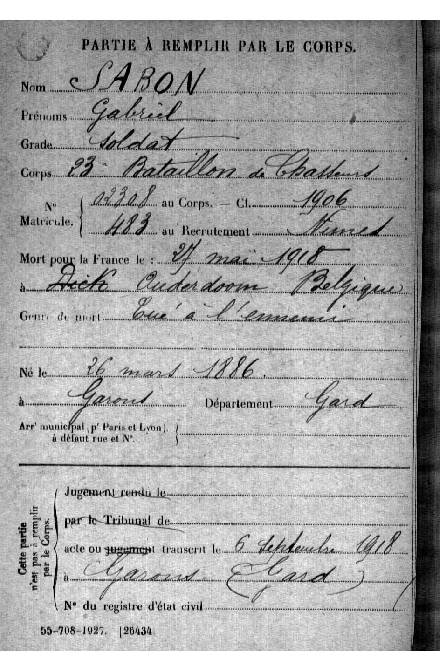 PARTIE À REMPLIR PAR LE CORPS.
Nom SABON
Prénoms Gabriel
Grade soldat
Corps 23e Bataillon de Chasseurs
N° Matricule. 02308 au Corps. — Cl. 1906
483 au Recrutement Nimes
Mort pour la France le : 27 mai 1918
à Dick Ouderdoom Belgique
Genre de mort Tué à l'ennemi
Né le 26 mars 1886.
à Garons Département Gard
Arrt municipal (pr Paris et Lyon), à défaut rue et N°.
Cette partie n'est pas à remplir par le Corps.
Jugement rendu le
par le Tribunal de
acte ou jugement transcrit le 6 septembre 1918
à Garons (Gard)
N° du registre d'état civil
55-708-1927. [26434.